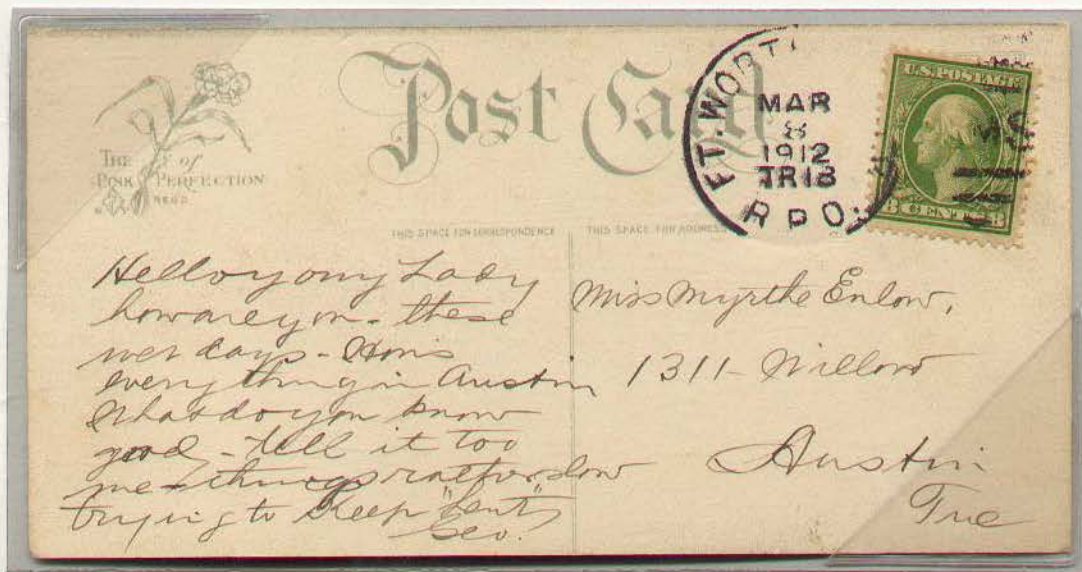 Post Card
THE of
PINK PERFECTION
FT. WORT
MAR
8
1912
TR18
R P O
U.S. POSTAGE
CENT
THIS SPACE FOR CORRESPONDENCE
THIS SPACE FOR ADDRESS
Hello yong Lady
how are you - these
wet days - How is
everything in Austin
What do you know
good - tell it too
me - things rather slow
trying to keep "Lent"
Geo.
Miss Myrthe Enlow,
1311 - Willow
Austin